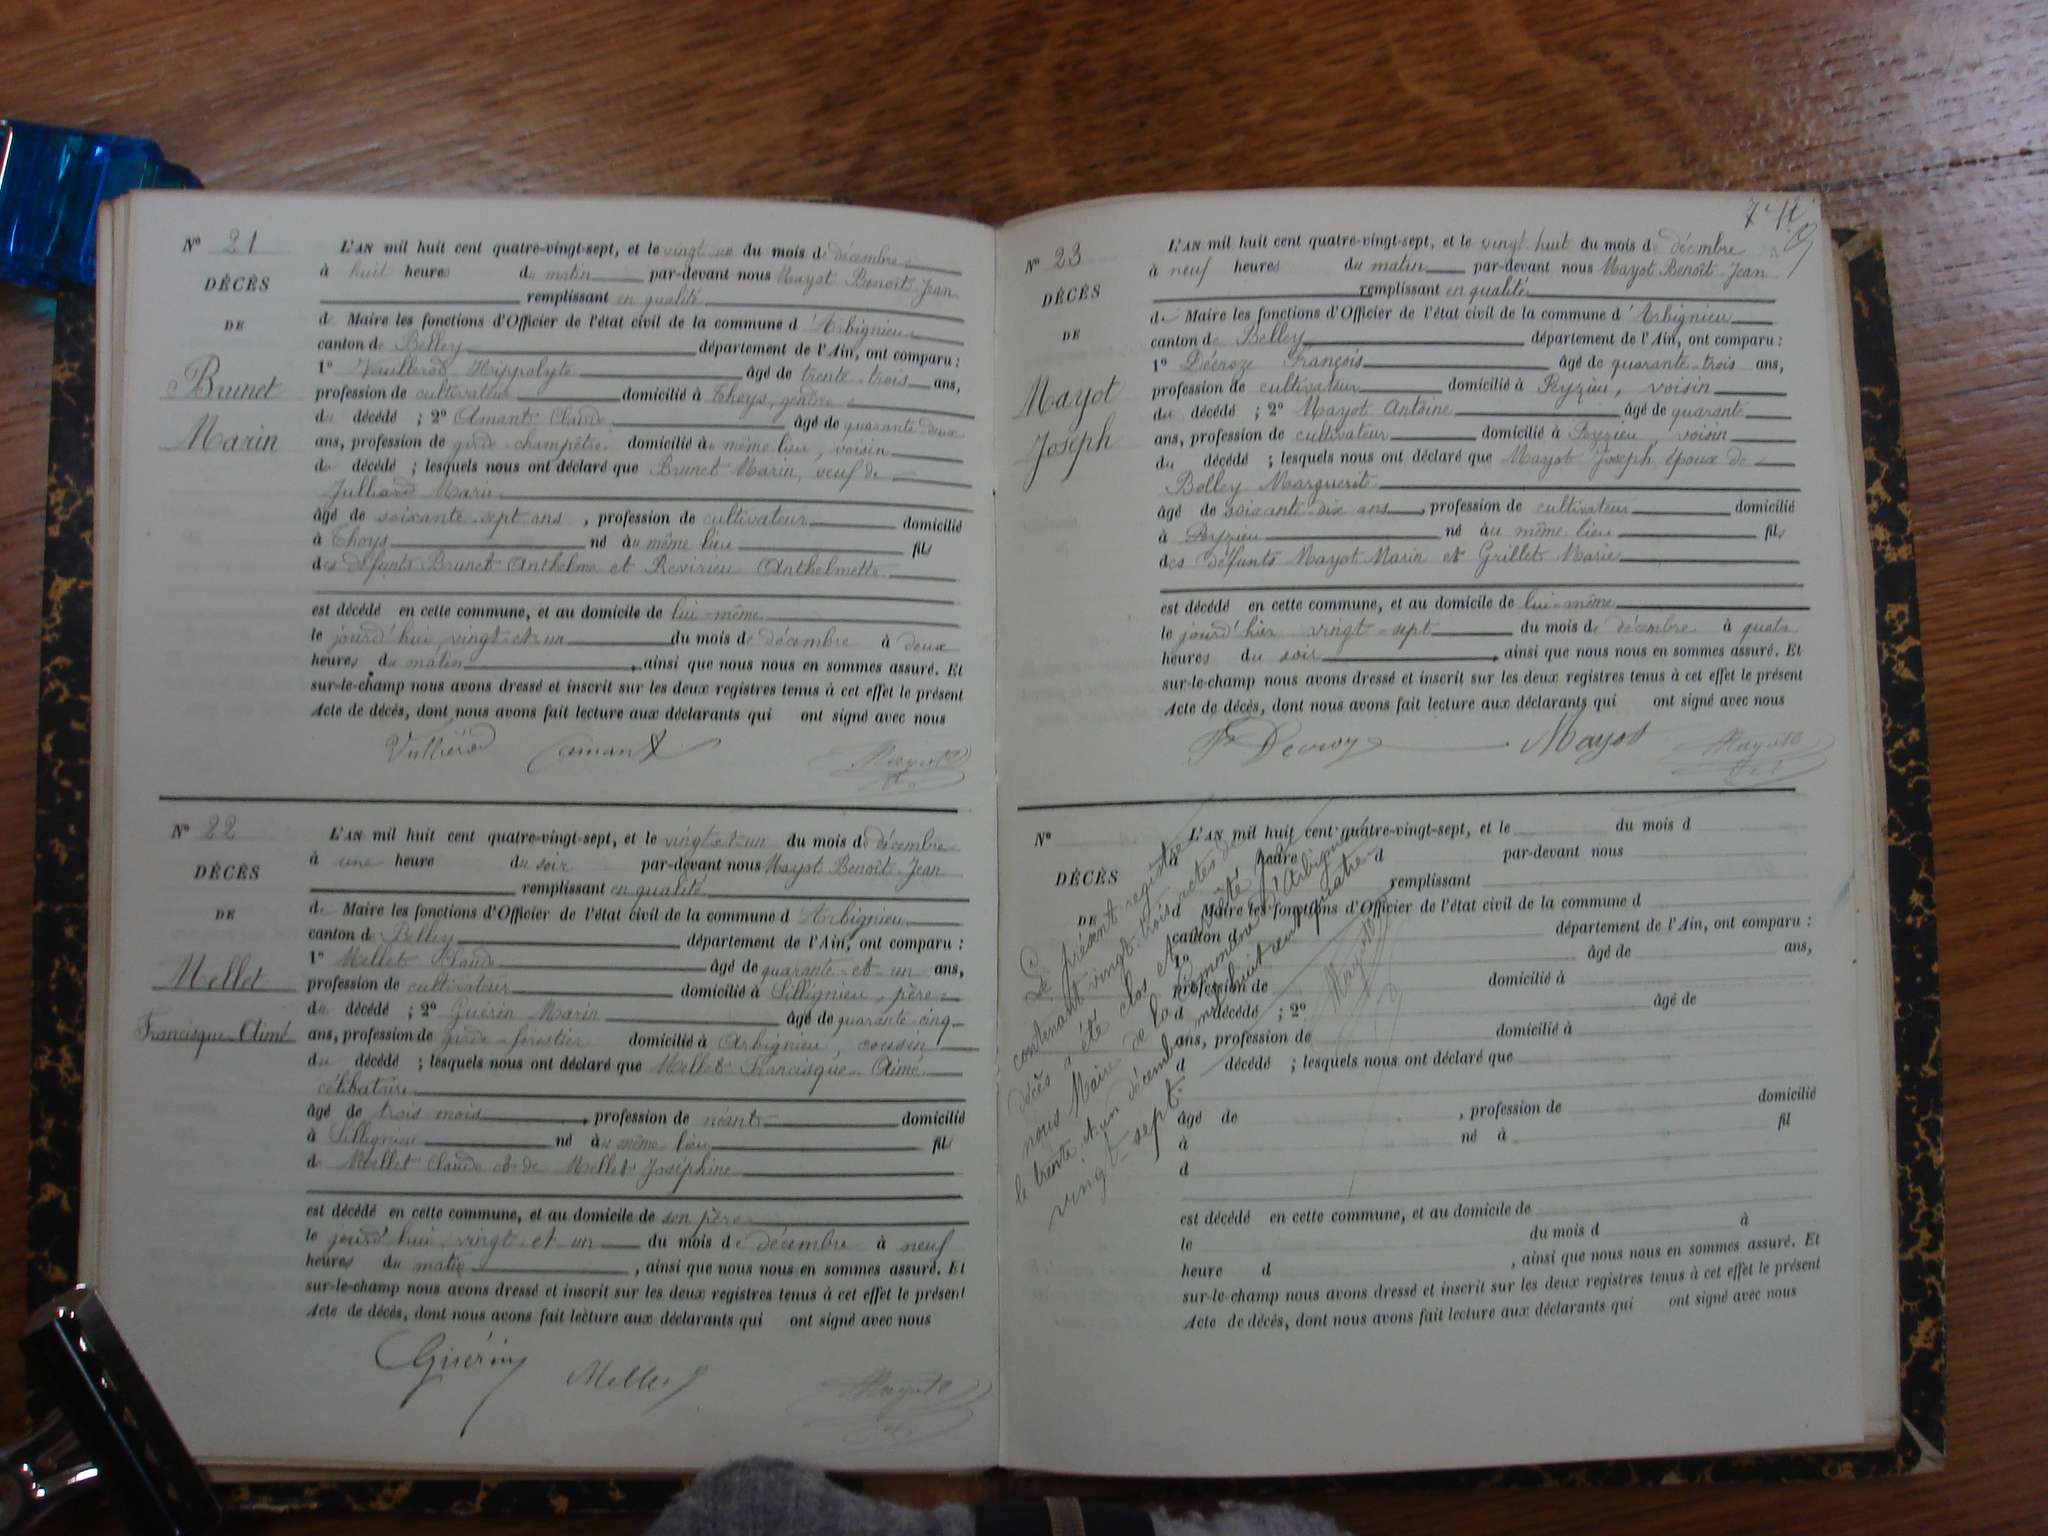 N° 21
DÉCÈS
DE
Brunet
Marin
L'AN mil huit cent quatre-vingt-sept, et le vingt un du mois de décembre
à huit heures du matin par-devant nous Mayot Benoît Jean
remplissant en qualité
de Maire les fonctions d'Officier de l'état civil de la commune d'Arbignieu
canton de Belley département de l'Ain, ont comparu :
1° Vuillerod Hippolyte âgé de trente-trois ans,
profession de cultivateur domicilié à Thoys, gendre
du décédé ; 2° Amant Claude âgé de quarante deux
ans, profession de garde champêtre domicilié au même lieu, voisin
du décédé ; lesquels nous ont déclaré que Brunet Marin, veuf de
Julliard Marie
âgé de soixante-sept ans, profession de cultivateur domicilié
à Thoys né au même lieu fils
des défunts Brunet Anthelme et Revirieu Anthelmette
est décédé en cette commune, et au domicile de lui-même
le jourd'hui vingt-et-un du mois de décembre à deux
heures du matin, ainsi que nous nous en sommes assuré. Et
sur-le-champ nous avons dressé et inscrit sur les deux registres tenus à cet effet le présent
Acte de décès, dont nous avons fait lecture aux déclarants qui ont signé avec nous
Vulliérod Amant Mayot
N° 22
DÉCÈS
DE
Mellet
Francisque-Aimé
L'AN mil huit cent quatre-vingt-sept, et le vingt-et-un du mois de décembre
à une heure du soir par-devant nous Mayot Benoît Jean
remplissant en qualité
de Maire les fonctions d'Officier de l'état civil de la commune d'Arbignieu
canton de Belley département de l'Ain, ont comparu :
1° Mellet Claude âgé de quarante-et-un ans,
profession de cultivateur domicilié à Sillignieu, père
du décédé ; 2° Guérin Marin âgé de quarante cinq
ans, profession de garde-forestier domicilié à Arbignieu, cousin
du décédé ; lesquels nous ont déclaré que Mellet Francisque-Aimé
célibataire
âgé de trois mois, profession de néant domicilié
à Sillignieu né au même lieu fils
de Mellet Claude et de Mellet Joséphine
est décédé en cette commune, et au domicile de son père
le jourd'hui vingt et un du mois de décembre à neuf
heures du matin, ainsi que nous nous en sommes assuré. Et
sur-le-champ nous avons dressé et inscrit sur les deux registres tenus à cet effet le présent
Acte de décès, dont nous avons fait lecture aux déclarants qui ont signé avec nous
Guérin Mellet Mayot
N° 23
DÉCÈS
DE
Mayot
Joseph
L'AN mil huit cent quatre-vingt-sept, et le vingt huit du mois de décembre
à neuf heures du matin par-devant nous Mayot Benoît Jean
remplissant en qualité
de Maire les fonctions d'Officier de l'état civil de la commune d'Arbignieu
canton de Belley département de l'Ain, ont comparu :
1° Décroze François âgé de quarante-trois ans,
profession de cultivateur domicilié à Peyzieu, voisin
du décédé ; 2° Mayot Antoine âgé de quarante
ans, profession de cultivateur domicilié à Peyzieu, voisin
du décédé ; lesquels nous ont déclaré que Mayot Joseph, époux de
Bolley Marguerite
âgé de soixante-dix ans, profession de cultivateur domicilié
à Peyzieu né au même lieu fils
des défunts Mayot Marin et Grillet Marie
est décédé en cette commune, et au domicile de lui-même
le jourd'hier vingt-sept du mois de décembre à quatre
heures du soir, ainsi que nous nous en sommes assuré. Et
sur-le-champ nous avons dressé et inscrit sur les deux registres tenus à cet effet le présent
Acte de décès, dont nous avons fait lecture aux déclarants qui ont signé avec nous
Mayot Mayot
N°
DÉCÈS
DE
L'AN mil huit cent quatre-vingt-sept, et le du mois d
à heure d par-devant nous
remplissant
d Maire les fonctions d'Officier de l'état civil de la commune d
canton d département de l'Ain, ont comparu :
1° âgé de ans,
profession de domicilié à
d décédé ; 2° âgé de
ans, profession de domicilié à
d décédé ; lesquels nous ont déclaré que
âgé de , profession de domicilié
à né à fil
d
est décédé en cette commune, et au domicile de
le du mois d à
heure d , ainsi que nous nous en sommes assuré. Et
sur-le-champ nous avons dressé et inscrit sur les deux registres tenus à cet effet le présent
Acte de décès, dont nous avons fait lecture aux déclarants qui ont signé avec nous
Le présent registre
contenant vingt-trois actes de
décès a été clos et arrêté par
nous Maire de la commune d'Arbignieu
le trente et un décembre mil huit cent quatre-
vingt-sept.
Mayot